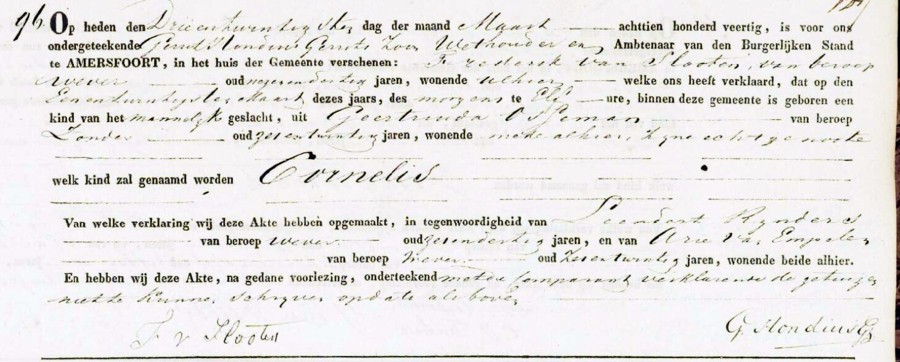 96 Op heden den Drieentwintigsten dag der maand Maart achttien honderd veertig, is voor ons
ondergeteekende Gerrit Hondius Gerrits Zoon Wethouder en Ambtenaar van den Burgerlijken Stand
te AMERSFOORT, in het huis der Gemeente verschenen: Frederik van Slooten, van beroep
wever oud jaren, wonende alhier welke ons heeft verklaard, dat op den
Eenentwintigsten Maart dezes jaars, des morgens te Elf ure, binnen deze gemeente is geboren een
kind van het mannelijk geslacht, uit Geertruida van beroep
Zonder oud zesentwintig jaren, wonende mede alhier, zijne echtgenoote
welk kind zal genaamd worden Cornelis
Van welke verklaring wij deze Akte hebben opgemaakt, in tegenwoordigheid van Leendert Rynders
van beroep wever oud jaren, en van Arie van
van beroep Wever oud zesentwintig jaren, wonende beide alhier.
En hebben wij deze Akte, na gedane voorlezing, onderteekend met de Comparant verklarende de getuigen
niet te kunnen schrijven op date als boven
F v Slooten
G. Hondius Gz